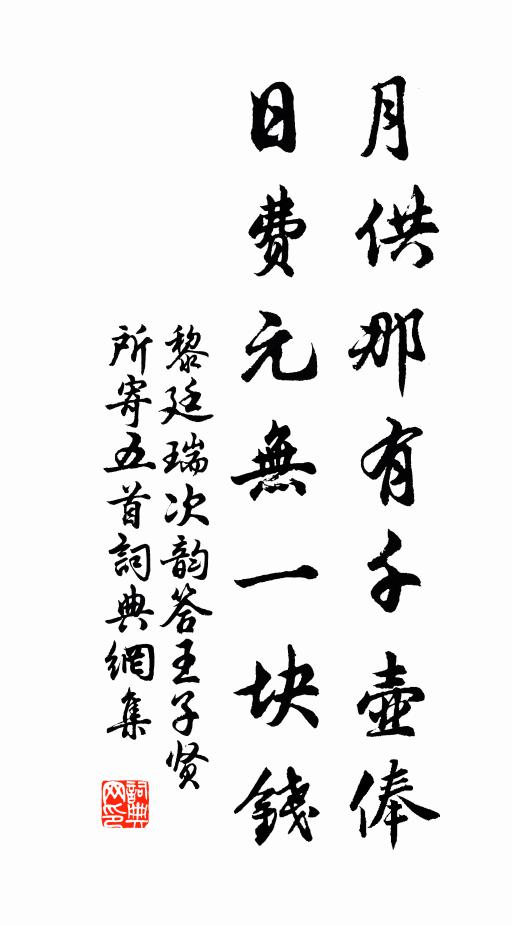 月供那有千壺俸
日费元無一块錢
黎廷瑞次韵答王子贤
所寄五首詞典網集
詞典
网印